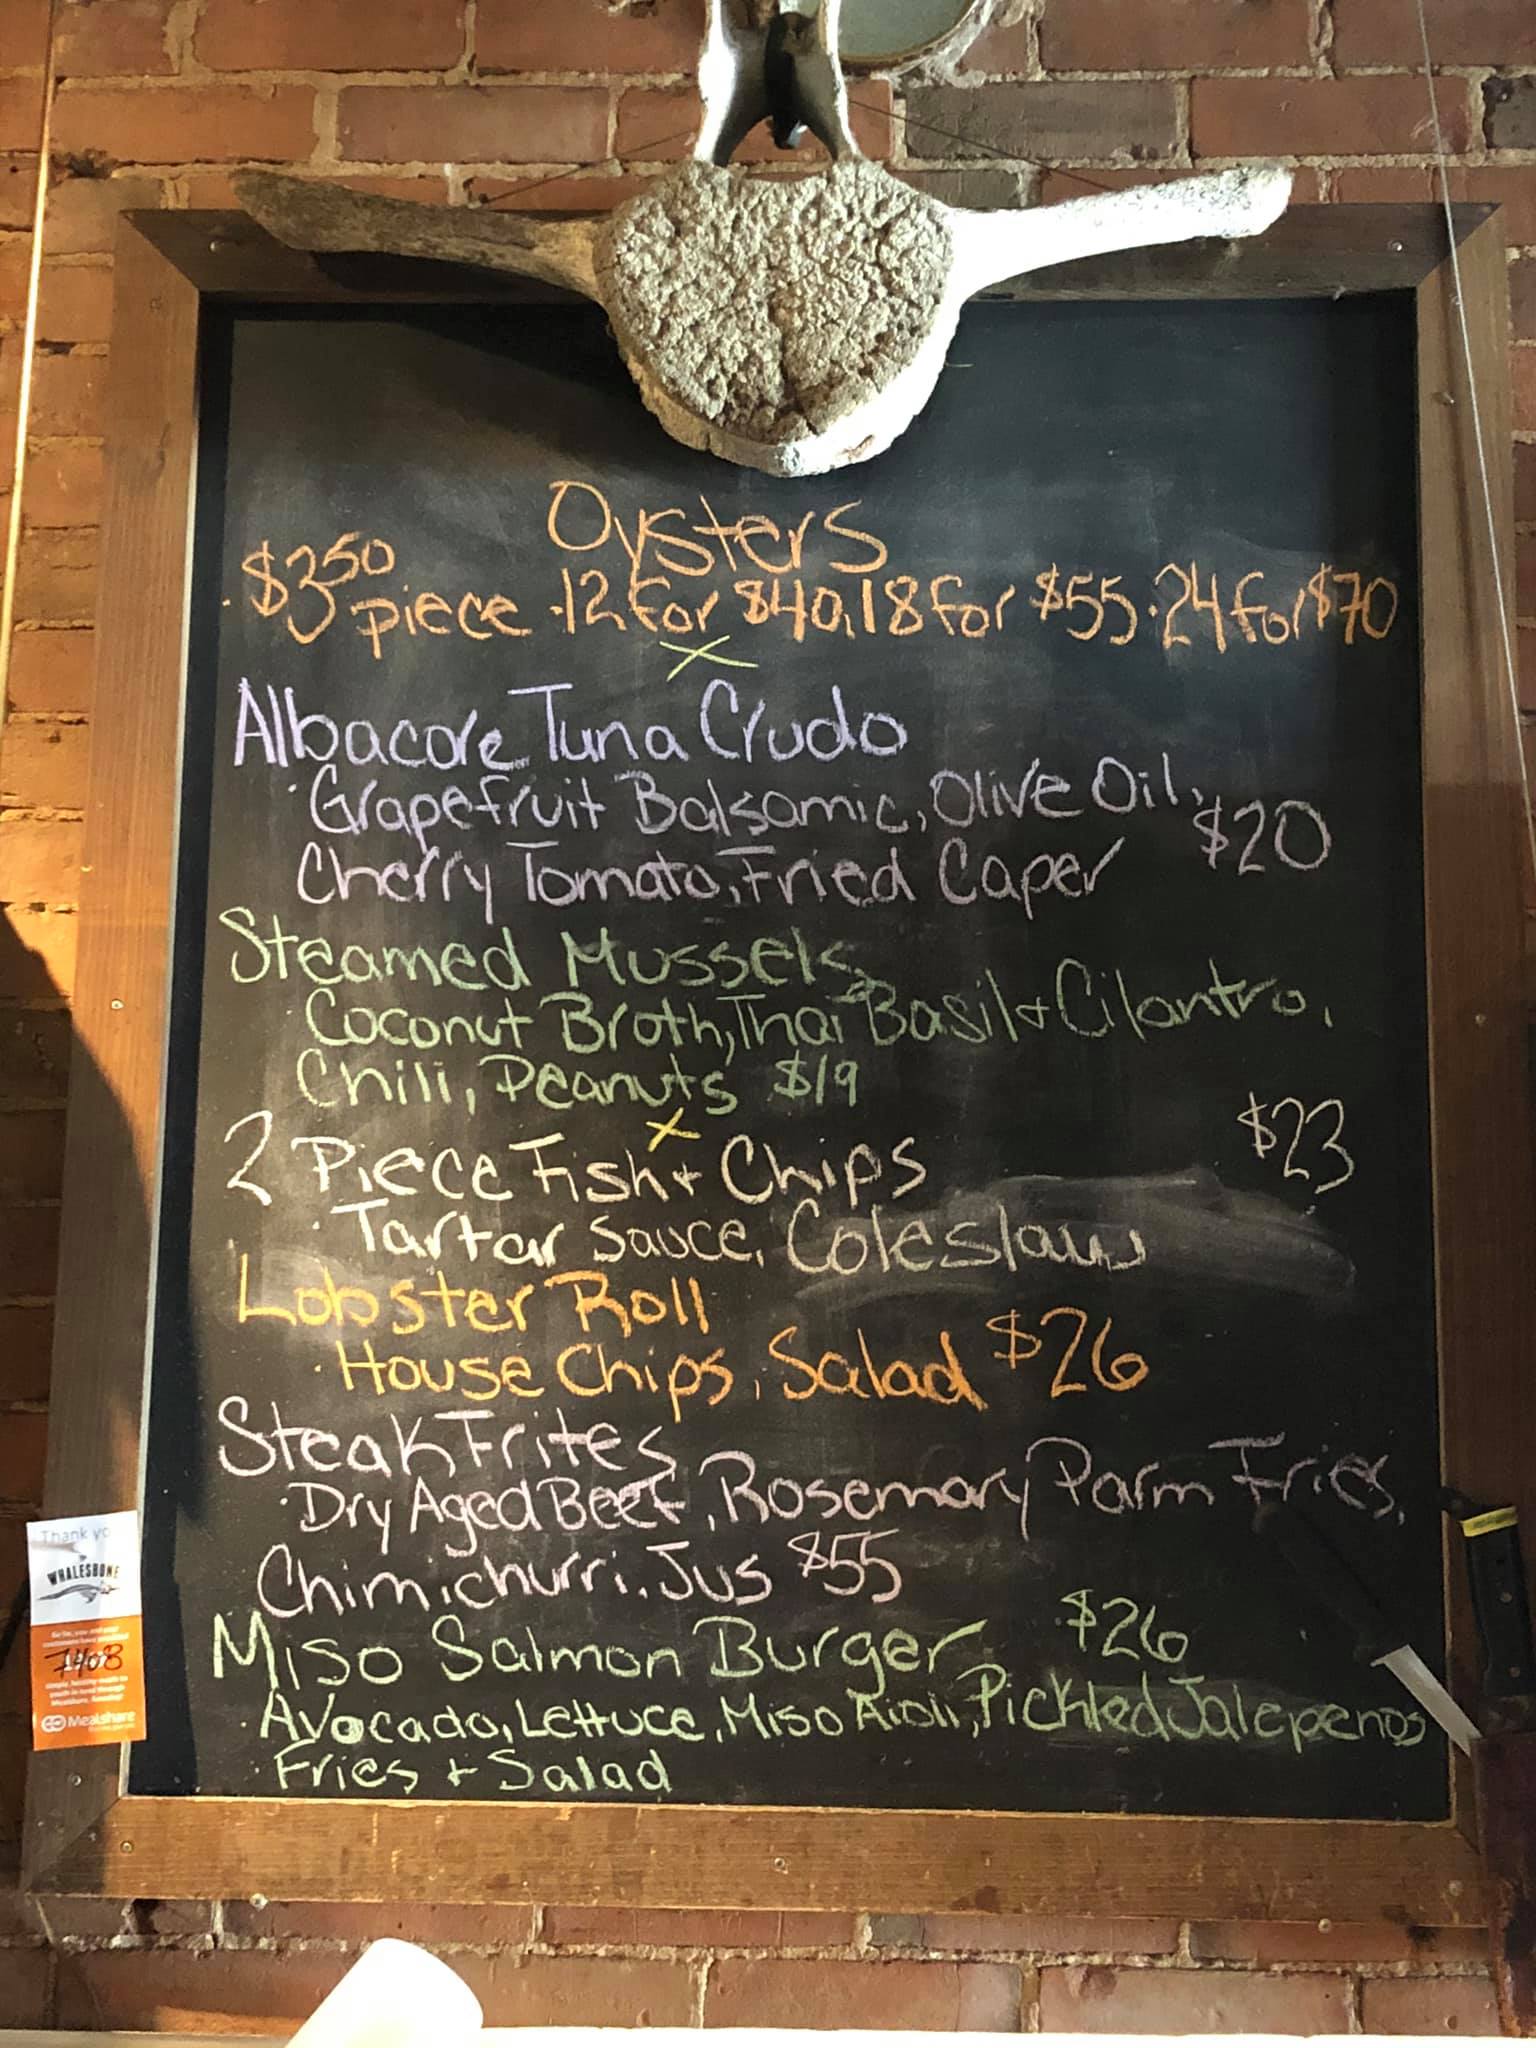 Oysters
· $3 50 piece · 12 for $40, 18 for $55 · 24 for $70
Albacore Tuna Crudo
· Grapefruit Balsamic, Olive Oil,
Cherry Tomato, Fried Caper $20
Steamed Mussels
Coconut Broth, Thai Basil + Cilantro,
Chili, Peanuts $19
2 Piece Fish + Chips $23
· Tartar Sauce, Coleslaw
Lobster Roll
· House Chips, Salad $26
Steak Frites
· Dry Aged Beef, Rosemary Parm Fries,
Chimichurri, Jus $55
Miso Salmon Burger $26
· Avocado, Lettuce, Miso Aioli, Pickled Jalepenos
· Fries + Salad
Thank yo
WHALESBONE
Mealshare